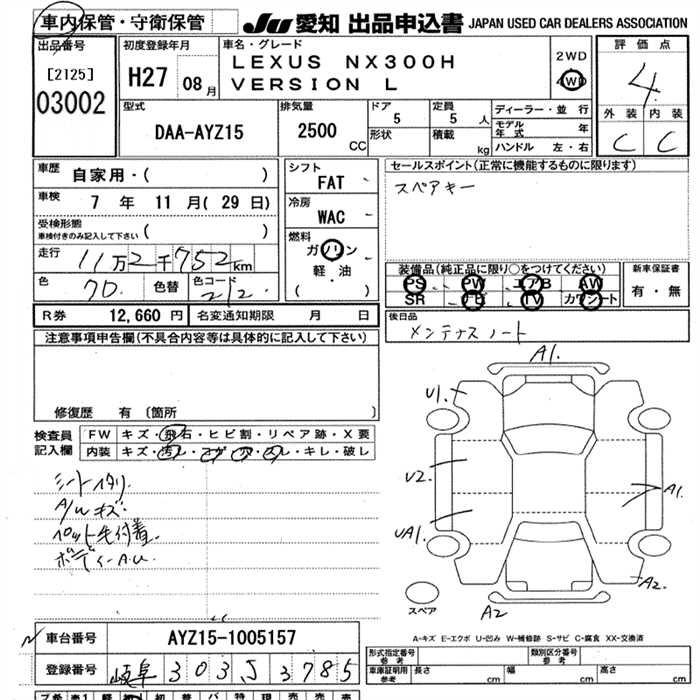 車内保管・守衛保管 JU 愛知 出品申込書 JAPAN USED CAR DEALERS ASSOCIATION
出品番号
[2125]
03002
初度登録年月
H27 08月
車名・グレード
LEXUS NX300H
VERSION L
2WD
4WD
評価点
4
外装 内装
C C
型式
DAA-AYZ15
排気量
2500 CC
ドア 5
形状
定員 5 人
積載 kg
ディーラー・並行
モデル年式 年
ハンドル 左・右
車歴 自家用・( )
車検 7 年 11 月( 29 日)
受検形態
車検付きのみ記入して下さい ( )
走行 11万2千752km
色 70. 色替 色コード 212.
シフト FAT
冷房 WAC
燃料
ガソリン
軽・油
( )
セールスポイント(正常に機能するものに限ります)
スペアキー
装備品(純正品に限り○をつけてください)
PS PW エアB AW
SR ナビ TV カワシート
新車保証書
有・無
R券 12,660 円 名変通知期限 月 日
後日品
メンテナスノート
注意事項申告欄(不具合内容等は具体的に記入して下さい)
修復歴 有 〔箇所 〕
検査員
記入欄
FW キズ・飛石・ヒビ割・リペア跡・X要
内装 キズ・汚レ・コゲ・穴・スレ・キレ・破レ
シートイタリ.
A/Wキズ.
ペット毛付着.
ボディーA.U.
A1.
U1.
U2.
UA1.
A1.
A2.
A2
スペア
A-キズ E-エクボ U-凹み W-補修跡 S-サビ C-腐食 XX-交換済
車台番号 AYZ15-1005157
登録番号 岐阜 303 J 3785
形式指定番号
参考
類別区分番号
参考
車庫証明用
参考
長さ cm 幅 cm 高さ cm